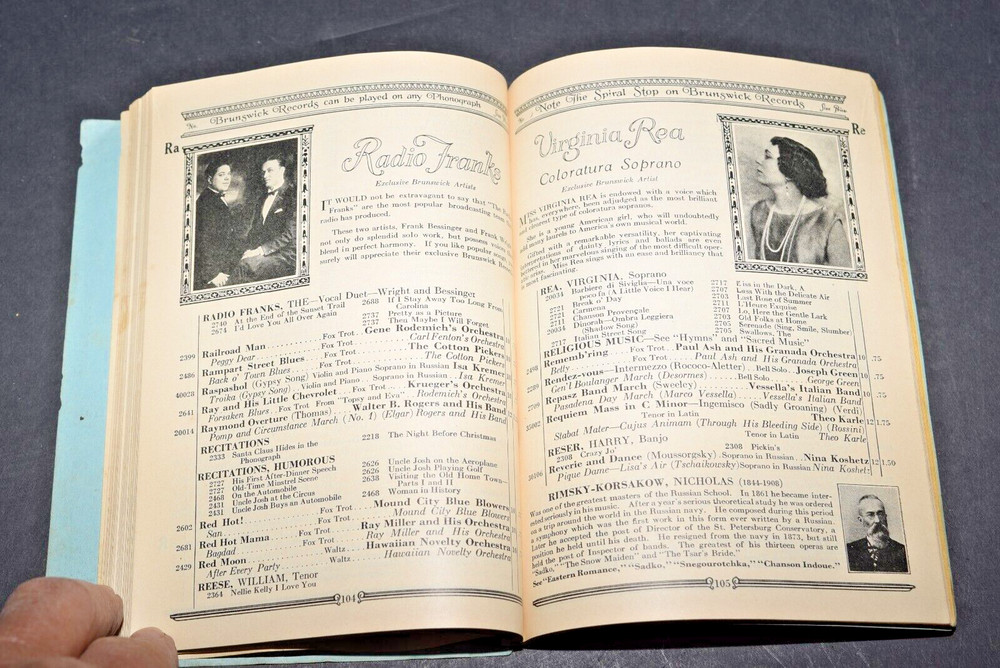 Brunswick Records can be played on any Phonograph
Ra
Radio Franks
Exclusive Brunswick Artists
IT WOULD not be extravagant to say that "The
Franks" are the most popular broadcasting team
radio has produced.
These two artists, Frank Bessinger and Frank
not only do splendid solo work, but possess voices
blend in perfect harmony. If you like popular songs
surely will appreciate their exclusive Brunswick
RADIO FRANKS, THE—Vocal Duet—Wright and Bessinger
2740 At the End of the Sunset Trail
2674 I'd Love You All Over Again
2688 If I Stay Away Too Long From
Carolina
2737 Pretty as a Picture
2737 Then Maybe I Will Forget
2399 Railroad Man Fox Trot Gene Rodemich's Orchestra
Peggy Dear Fox Trot Carl Fenton's Orchestra
2486 Rampart Street Blues Fox Trot The Cotton Pickers
Back o' Town Blues Fox Trot The Cotton Pickers
40028 Raspashol (Gypsy Song) Violin and Piano Soprano in Russian Isa Kremer
Troika (Gypsy Song) Violin and Piano Soprano in Russian Isa Kremer
2641 Ray and His Little Chevrolet Krueger's Orchestra
Forsaken Blues Fox Trot From "Topsy and Eva" Rodemich's Orchestra
20014 Raymond Overture (Thomas) Walter B. Rogers and His Band
Pomp and Circumstance March (No. 1) (Elgar) Rogers and His Band
RECITATIONS
2333 Santa Claus Hides in the
Phonograph
2218 The Night Before Christmas
RECITATIONS, HUMOROUS
2727 His First After-Dinner Speech
2727 Old-Time Minstrel Scene
2468 On the Automobile
2431 Uncle Josh at the Circus
2431 Uncle Josh Buys an Automobile
2626 Uncle Josh on the Aeroplane
2626 Uncle Josh Playing Golf
2638 Visiting the Old Home Town—
Parts I and II
2468 Woman in History
2602 Red Hot! Fox Trot Mound City Blue Blowers
San Fox Trot Mound City Blue Blowers
2681 Red Hot Mama Fox Trot Ray Miller and His Orchestra
Bagdad Fox Trot Ray Miller and His Orchestra
2429 Red Moon Waltz Hawaiian Novelty Orchestra
After Every Party Waltz Hawaiian Novelty Orchestra
REESE, WILLIAM, Tenor
2364 Nellie Kelly I Love You
104
Note The Spiral Stop on Brunswick Records
Re
Virginia Rea
Coloratura Soprano
Exclusive Brunswick Artist
MISS VIRGINIA REA is endowed with a voice which
has, everywhere, been adjudged as the most brilliant
and unusual type of coloratura soprano.
She is a young American girl, who will undoubtedly
add many laurels to America's own musical world.
Gifted with a remarkable versatility, her captivating
interpretations of dainty lyrics and ballads are even
in her marvelous singing of the most difficult
Miss Rea sings with an ease and brilliancy that
most fascinating.
REA, VIRGINIA, Soprano
20034 Barbiere di Siviglia—Una voce
poco fa (A Little Voice I Hear)
Break o' Day
Carmena
Chanson Provençale
Dinorah—Ombra Leggiera
(Shadow Song)
2717 Italian Street Song
2712 Kiss in the Dark, A
2707 Lass With the Delicate Air
2703 Last Rose of Summer
L'Heure Exquise
2707 Lo, Here the Gentle Lark
2703 Old Folks at Home
2705 Serenade (Sing, Smile, Slumber)
2705 Swallows, The
RELIGIOUS MUSIC—See "Hymns" and "Sacred Music"
Rememb'ring Fox Trot Paul Ash and His Granada Orchestra 10 .75
Betty Fox Trot Paul Ash and His Granada Orchestra
Rendez-vous—Intermezzo (Rococo-Aletter) Bell Solo Joseph Green 10 .75
Gen'l Boulanger March (Desormes) Bell Solo George Green
Repasz Band March (Sweeley) Vessella's Italian Band 10 .75
Pasadena Day March (Marco Vessella) Vessella's Italian Band
35002 Requiem Mass in C Minor—Ingemisco (Sadly Groaning) (Verdi)
Tenor in Latin Theo Karle 12 1.75
Stabat Mater—Cujus Animam (Through His Bleeding Side) (Rossini)
Tenor in Latin Theo Karle
RESER, HARRY, Banjo
2308 Crazy Jo'
2308 Pickin's
Reverie and Dance (Moussorgsky) Soprano in Russian Nina Koshetz 12 1.50
Pique Dame—Lisa's Air (Tschaikowsky) Soprano in Russian Nina Koshetz
RIMSKY-KORSAKOW, NICHOLAS (1844-1908)
Was one of the greatest masters of the Russian School. In 1861 he became inter-
ested seriously in his music. After a year's serious theoretical study he was ordered
on a trip around the world in the Russian navy. He composed during this period
a symphony which was the first work in this form ever written by a Russian.
Later he accepted the post of Director of the St. Petersburg Conservatory, a
position he held until his death. He resigned from the navy in 1873, but still
held the post of Inspector of bands. The greatest of his thirteen operas are
"Sadko," "The Snow Maiden" and "The Tsar's Bride."
See "Eastern Romance," "Sadko," "Snegourotchka," "Chanson Indoue."
105